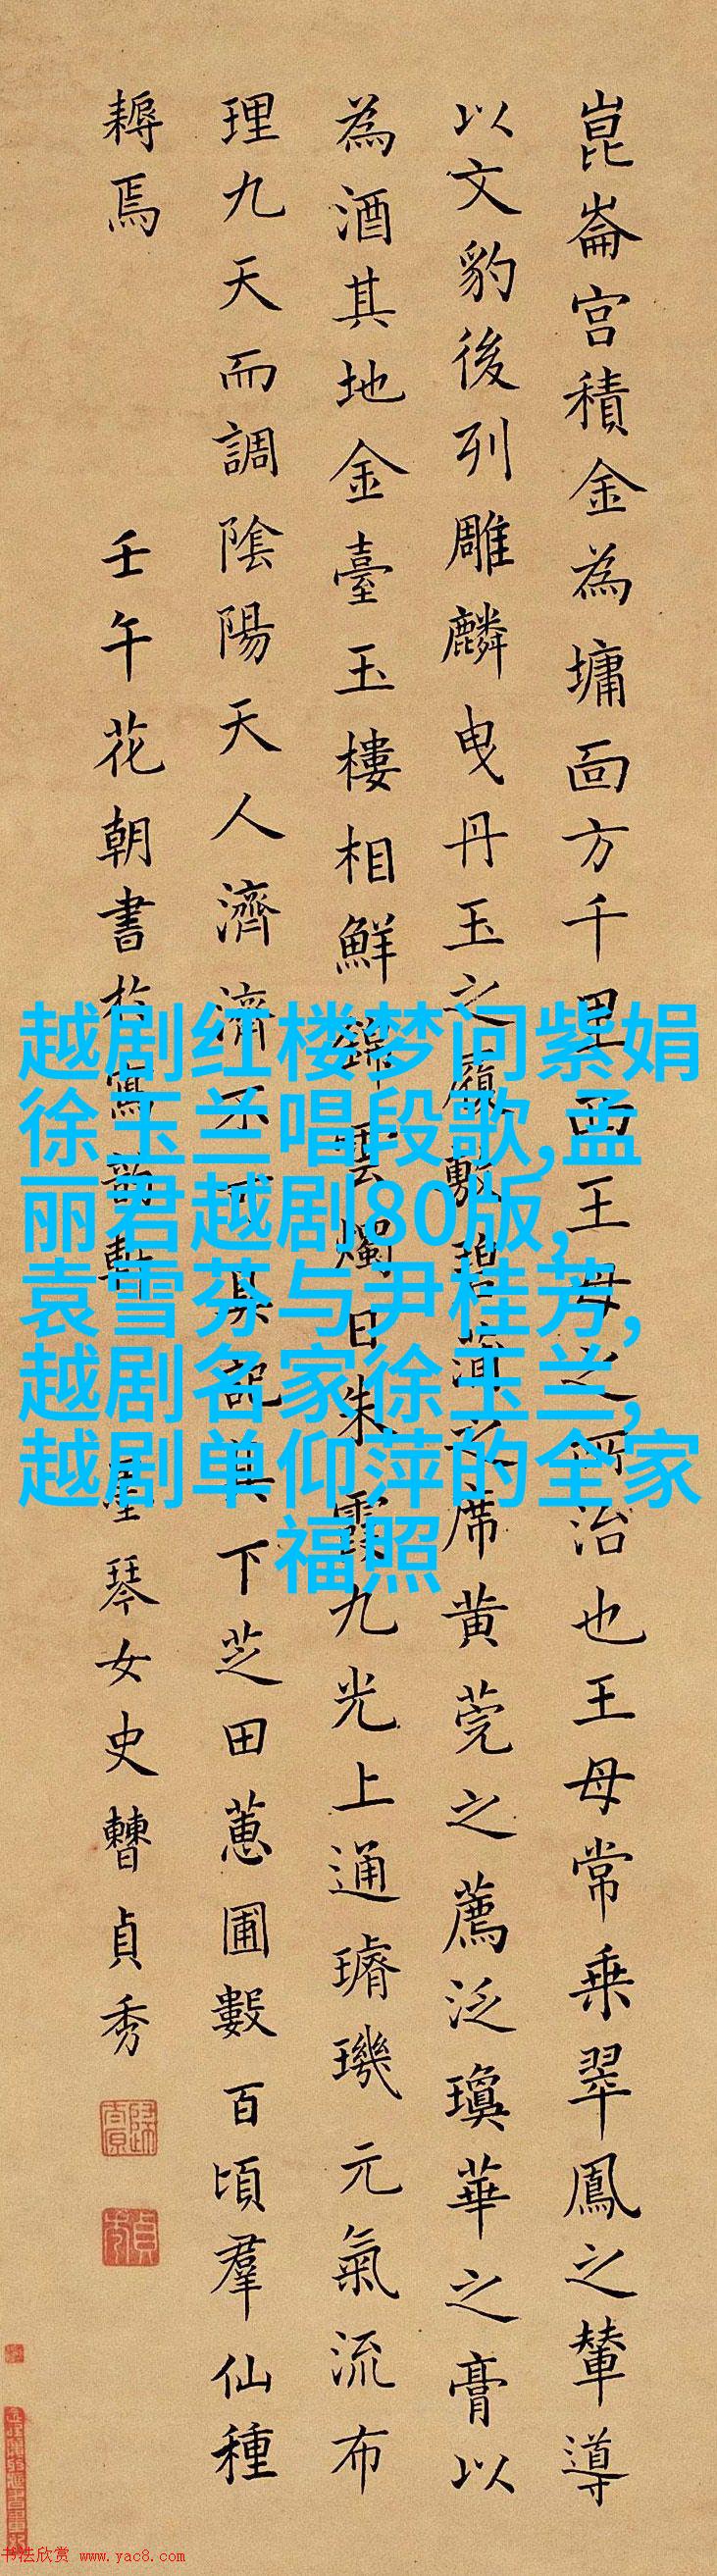 崑崙宮積金為墉面方千里西王母之所治也王母常乗翠鳳之輦導
以文豹後列雕麟曳丹玉之履敷碧蒲之席黄莞之薦泛瓊華之膏以
為酒其地金臺玉樓相鮮錦雲燭日朱霞九光上通璿璣元氣流布
理九天而調陰陽天人濟濟不可具記其下芝田蕙圃數百頃羣仙種
耨焉
壬午花朝書於寫韻軒 墨琴女史曹貞秀
越剧红楼梦问紫娟
徐玉兰唱段歌,孟
丽君越剧80版,
袁雪芬与尹桂芳,
越剧名家徐玉兰,
越剧单仰萍的全家
福照
书法欣赏 www.yac8.com